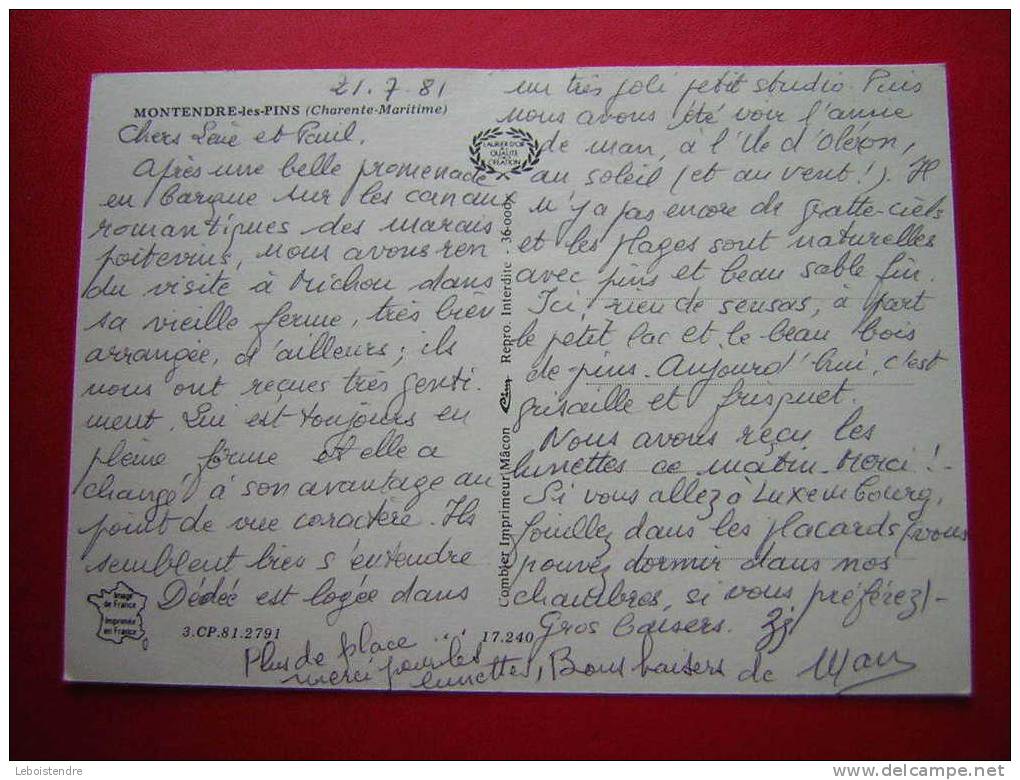 21.7.81
MONTENDRE-les-PINS (Charente-Maritime)
Chers et Paul,
Après une belle promenade
en barque sur les canaux
romantiques des marais
poitevins, nous avons ren
du visite à Michou dans
sa vieille ferme, très bien
arrangée, d'ailleurs; ils
nous ont reçues très genti-
ment. Lui est toujours en
pleine forme et elle a
changé à son avantage au
point de vue caractère. Ils
semblent bien s'entendre
Dédée est logée dans
un très joli petit studio. Puis
nous avons été voir l'
de Man, à l'île d'Oléron,
au soleil (et au vent!). Il
n'y a pas encore de gratte-ciels
et les plages sont naturelles
avec pins et beau sable fin.
Ici, rien de sensas, à part
le petit lac et le beau bois
de pins. Aujourd'hui, c'est
grisaille et frisquet.
Nous avons reçu les
lunettes ce matin. Merci!
Si vous allez à Luxembourg,
fouillez dans les placards (vous
pouvez dormir dans nos
chambres, si vous préférez)-
Gros baisers.
Plus de place ...
merci pour les
lunettes, Bons baisers de Man
LAURIER D'OR
QUALITÉ
CRÉATION
Combier Imprimeur Mâcon Cim Repro. Interdite - 36-000X
Image
de France
Imprimée
en France
3.CP.81.2791
17.240
Leboistendre
delcampe.net